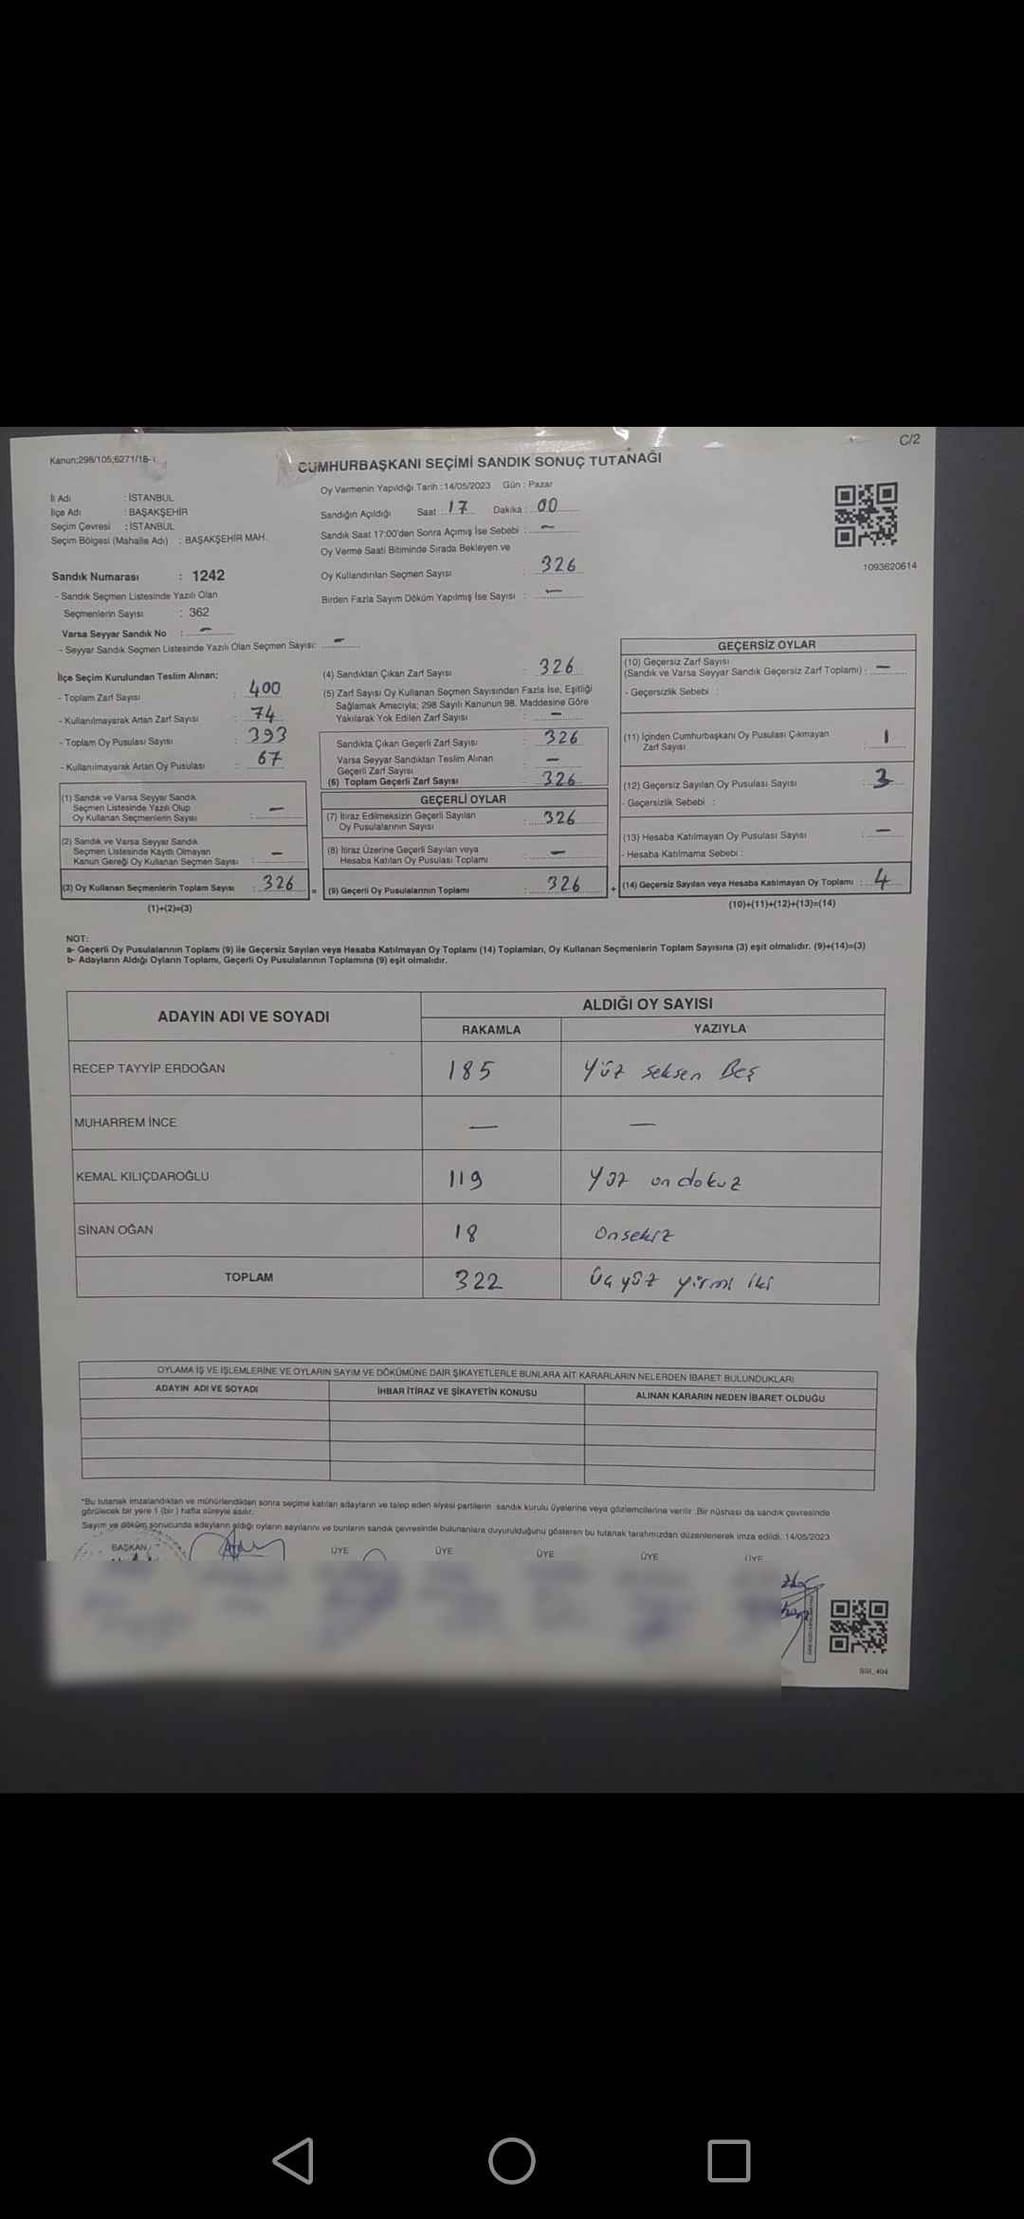 C/2
Kanun:298/105;6271/18-
CUMHURBAŞKANI SEÇİMİ SANDIK SONUÇ TUTANAĞI
İl Adı : İSTANBUL
İlçe Adı : BAŞAKŞEHİR
Seçim Çevresi : İSTANBUL
Seçim Bölgesi (Mahalle Adı) : BAŞAKŞEHİR MAH.
Oy Vermenin Yapıldığı Tarih : 14/05/2023 Gün : Pazar
Sandığın Açıldığı Saat 17 Dakika 00
Sandık Saat 17:00'den Sonra Açımış İse Sebebi : -
Oy Verme Saati Bitiminde Sırada Bekleyen ve
Oy Kullandırılan Seçmen Sayısı 326
Birden Fazla Sayım Döküm Yapılmış İse Sayısı : -
1093620614
Sandık Numarası : 1242
- Sandık Seçmen Listesinde Yazılı Olan
Seçmenlerin Sayısı : 362
Varsa Seyyar Sandık No : -
- Seyyar Sandık Seçmen Listesinde Yazılı Olan Seçmen Sayısı: -
İlçe Seçim Kurulundan Teslim Alınan;
- Toplam Zarf Sayısı : 400
- Kullanılmayarak Artan Zarf Sayısı : 74
- Toplam Oy Pusulası Sayısı : 393
- Kullanılmayarak Artan Oy Pusulası : 67
(1) Sandık ve Varsa Seyyar Sandık
Seçmen Listesinde Yazılı Olup
Oy Kullanan Seçmenlerin Sayısı : -
(2) Sandık ve Varsa Seyyar Sandık
Seçmen Listesinde Kayıtlı Olmayan
Kanun Gereği Oy Kullanan Seçmen Sayısı : -
(3) Oy Kullanan Seçmenlerin Toplam Sayısı : 326
(1)+(2)=(3)
(4) Sandıktan Çıkan Zarf Sayısı : 326
(5) Zarf Sayısı Oy Kullanan Seçmen Sayısından Fazla İse, Eşitliği
Sağlamak Amacıyla; 298 Sayılı Kanunun 98. Maddesine Göre
Yakılarak Yok Edilen Zarf Sayısı : -
Sandıkta Çıkan Geçerli Zarf Sayısı : 326
Varsa Seyyar Sandıktan Teslim Alınan
Geçerli Zarf Sayısı -
(6) Toplam Geçerli Zarf Sayısı : 326
GEÇERLİ OYLAR
(7) İtiraz Edilmeksizin Geçerli Sayılan
Oy Pusulalarının Sayısı : 326
(8) İtiraz Üzerine Geçerli Sayılan veya
Hesaba Katılan Oy Pusulası Toplamı : -
= (9) Geçerli Oy Pusulalarının Toplamı : 326
GEÇERSİZ OYLAR
(10) Geçersiz Zarf Sayısı
(Sandık ve Varsa Seyyar Sandık Geçersiz Zarf Toplamı) : -
- Geçersizlik Sebebi :
(11) İçinden Cumhurbaşkanı Oy Pusulası Çıkmayan
Zarf Sayısı : 1
(12) Geçersiz Sayılan Oy Pusulası Sayısı : 3
- Geçersizlik Sebebi :
(13) Hesaba Katılmayan Oy Pusulası Sayısı : -
- Hesaba Katılmama Sebebi :
+ (14) Geçersiz Sayılan veya Hesaba Katılmayan Oy Toplamı : 4
(10)+(11)+(12)+(13)=(14)
NOT:
a- Geçerli Oy Pusulalarının Toplamı (9) ile Geçersiz Sayılan veya Hesaba Katılmayan Oy Toplamı (14) Toplamları, Oy Kullanan Seçmenlerin Toplam Sayısına (3) eşit olmalıdır. (9)+(14)=(3)
b- Adayların Aldığı Oyların Toplamı, Geçerli Oy Pusulalarının Toplamına (9) eşit olmalıdır.
ADAYIN ADI VE SOYADI ALDIĞI OY SAYISI
RAKAMLA YAZIYLA
RECEP TAYYİP ERDOĞAN 185 Yüz seksen Beş
MUHARREM İNCE - -
KEMAL KILIÇDAROĞLU 119 Yüz on dokuz
SİNAN OĞAN 18 Onsekiz
TOPLAM 322 Üç yüz yirmi iki
OYLAMA İŞ VE İŞLEMLERİNE VE OYLARIN SAYIM VE DÖKÜMÜNE DAİR ŞİKAYETLERLE BUNLARA AİT KARARLARIN NELERDEN İBARET BULUNDUKLARI
ADAYIN ADI VE SOYADI İHBAR İTİRAZ VE ŞİKAYETİN KONUSU ALINAN KARARIN NEDEN İBARET OLDUĞU
*Bu tutanak imzalandıktan ve mühürlendikten sonra seçime katılan adayların ve talep eden siyasi partilerin sandık kurulu üyelerine veya gözlemcilerine verilir. Bir nüshası da sandık çevresinde
görülecek bir yere 1 (bir) hafta süreyle asılır.
Sayım ve döküm sonucunda adayların aldığı oyların sayılarını ve bunların sandık çevresinde bulunanlara duyurulduğunu gösteren bu tutanak tarafımızdan düzenlenerek imza edildi. 14/05/2023
BAŞKAN ÜYE ÜYE ÜYE ÜYE ÜYE